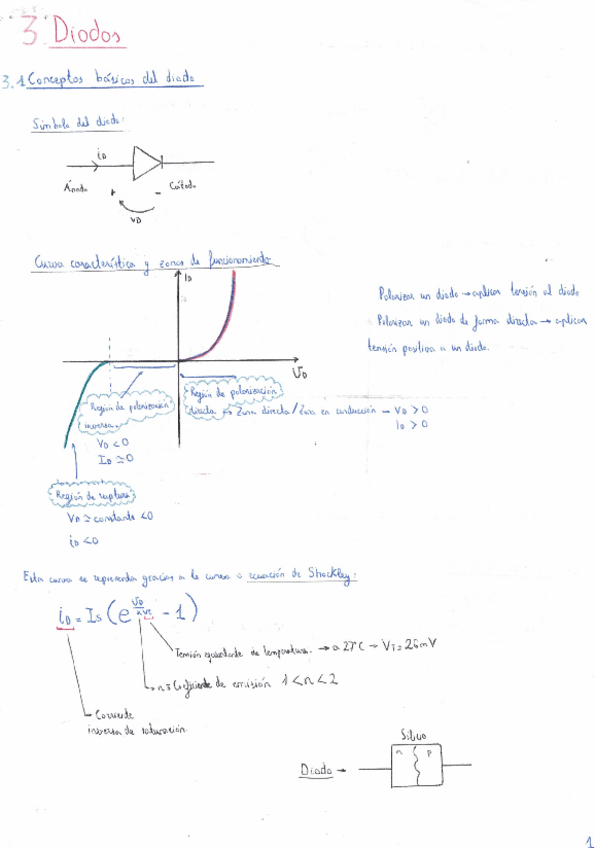 3. Diodos
3.1 Conceptos básicos del diodo
Símbolo del diodo:
iD
Ánodo + - Cátodo
VD
Curva característica y zonas de funcionamiento
ID
Polarizar un diodo → aplicar tensión al diodo
Polarizar un diodo de forma directa → aplicar
tensión positiva a un diodo.
VD
Región de polarización
inversa.
VD < 0
ID ≃ 0
Región de polarización
directa ↔ Zona directa / Zona en conducción — VD > 0
ID > 0
Región de ruptura
VD ≃ constante < 0
iD < 0
Esta curva se representa gracias a la curva o ecuación de Shockley:
iD = Is (e^(VD/nVT) - 1)
Tensión equivalente de temperatura. → a 27°C → VT = 26mV
n ≡ Coeficiente de emisión 1 < n < 2
Corriente
inversa de saturación.
Silicio
n p
Diodo →
1